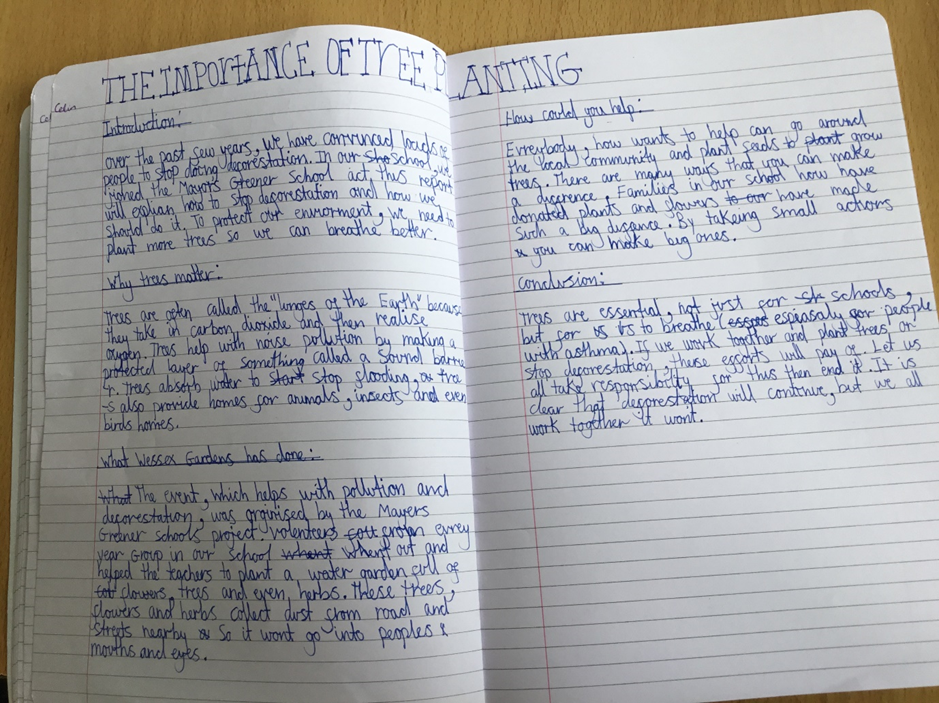 THE IMPORTANCE OF TREE PLANTING
Colin
Introduction:
over the past few years, We have convinced loads of
people to stop doing deforestation. In our school, we
joined the Mayors Greener School act, thus report
will explian how to stop deforestation and how we
should do it. To protect our enviorment, we need to
plant more trees so we can breathe better.
Why trees matter:
Trees are often called the "lunges of the Earth" because
they take in carbon dioxide and then realise
oxygen. Trees help with noise pollution by making a
protected layer of something called a Sound barrie
r. Trees absorb water to stop flooding, tree
-s also provide homes for animals, insects and even
birds homes.
What Wessex Gardens has done:
The event, which helps with pollution and
deforestation, was orginised by the Mayers
Greener schools project. Volenteers from evrey
year Group in our school whent out and
helped the teachers to plant a water garden full of
flowers, trees and even herbs. These trees,
flowers and herbs collect dust from road and
streets nearby So it wont go into peoples
mouths and eyes.
How could you help:
Evreybody, how wants to help can go around
the local community and plant seeds to grow
trees. There are many ways that you can make
a diference. Families in our school how have
donated plants and flowers have made
such a big diference. By takeing small actions
you can make big ones.
Conclusion:
Trees are essential, not just for schools,
but for us to breathe (espiasaly for people
with asthma). If we work together and plant trees or
stop deforestation, these efforts will pay of. Let us
all take responsibility for thus then end it. It is
clear that deforestation will contineue, but we all
work together it wont.